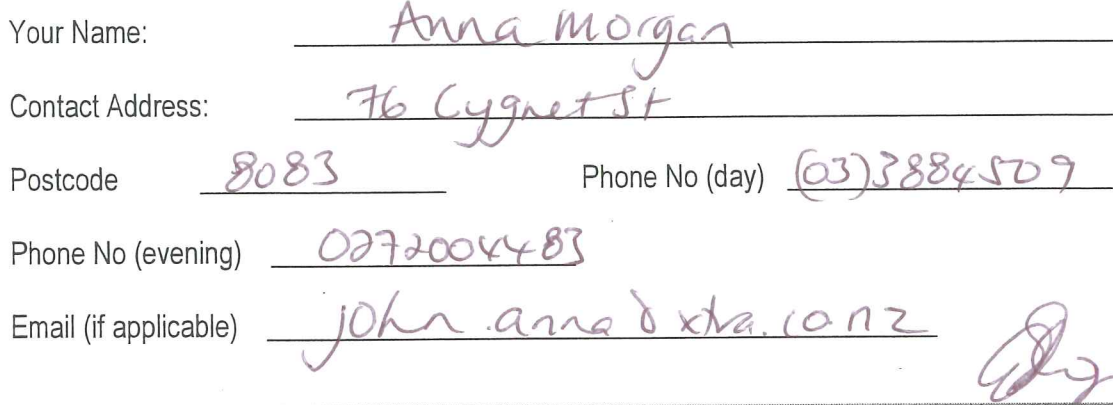 Your Name: Anna Morgan
Contact Address: 76 Cygnet St
Postcode 8083 Phone No (day) (03)3884509
Phone No (evening) 0272004483
Email (if applicable) john.anna@xtra.co.nz